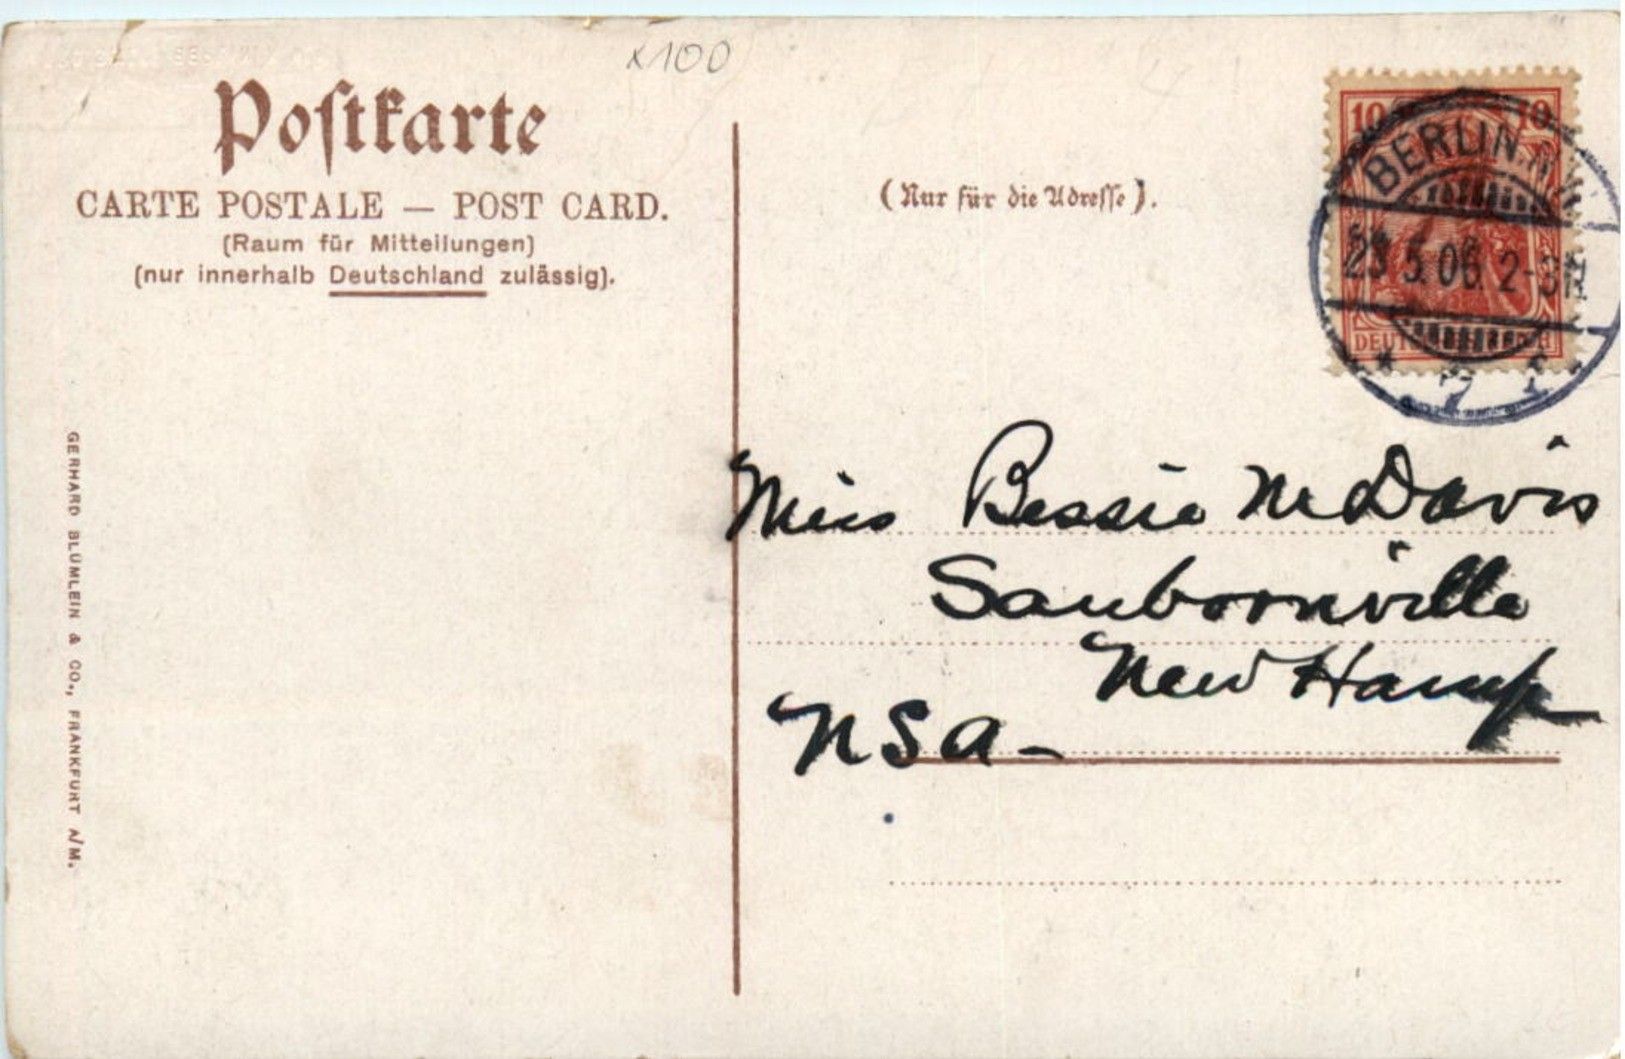 x100
Postkarte
CARTE POSTALE — POST CARD.
(Raum für Mitteilungen)
(nur innerhalb Deutschland zulässig).
GERHARD BLÜMLEIN & CO., FRANKFURT A/M.
(Nur für die Adresse).
10 10
BERLIN
23 5.06. 2-3N
DEUTSCHES REICH
Miss Bessie M Davis
Sanbornville
New Hamp
USA-